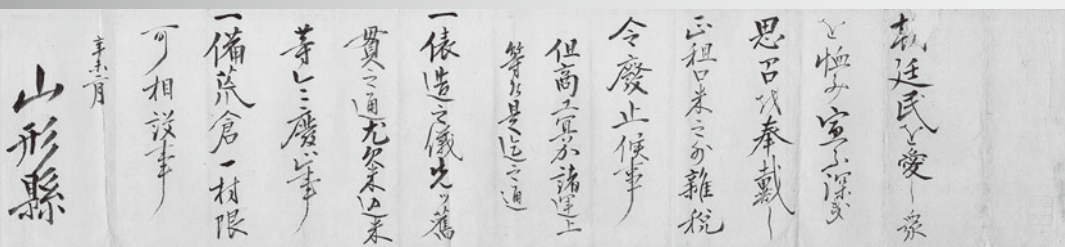 朝廷民を愛し衆
を恤み宣ふ深き
思召を奉戴し
正租口米之外雑税
令廢止候事
但高工冥加諸運上
等ハ是迄之通
一俵造之儀先ッ舊
貫之通尤欠米込米
等ハ廢候事
一備荒倉一村限
可相設事
辛未二月
山形縣